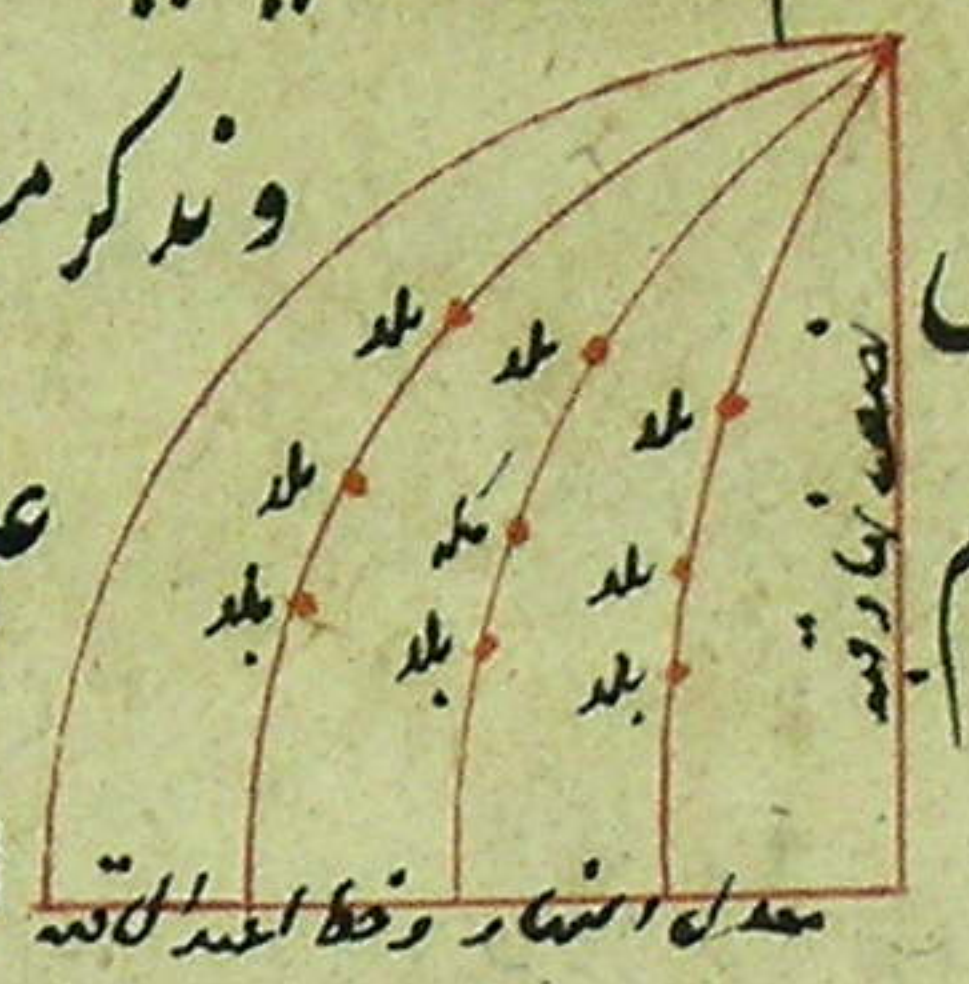 ونذكر
بلد
بلد
بلد
بلد
بلد
مكه
بلد
بلد
بلد
نصف نهار قبة
معدل النهار وخط اعتدال القبه